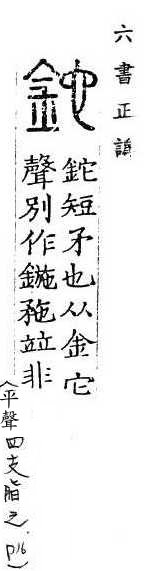 六書正譌
鉈
鉈短矛也从金它
聲別作鍦䂠竝非
(平聲四支脂之.P16)